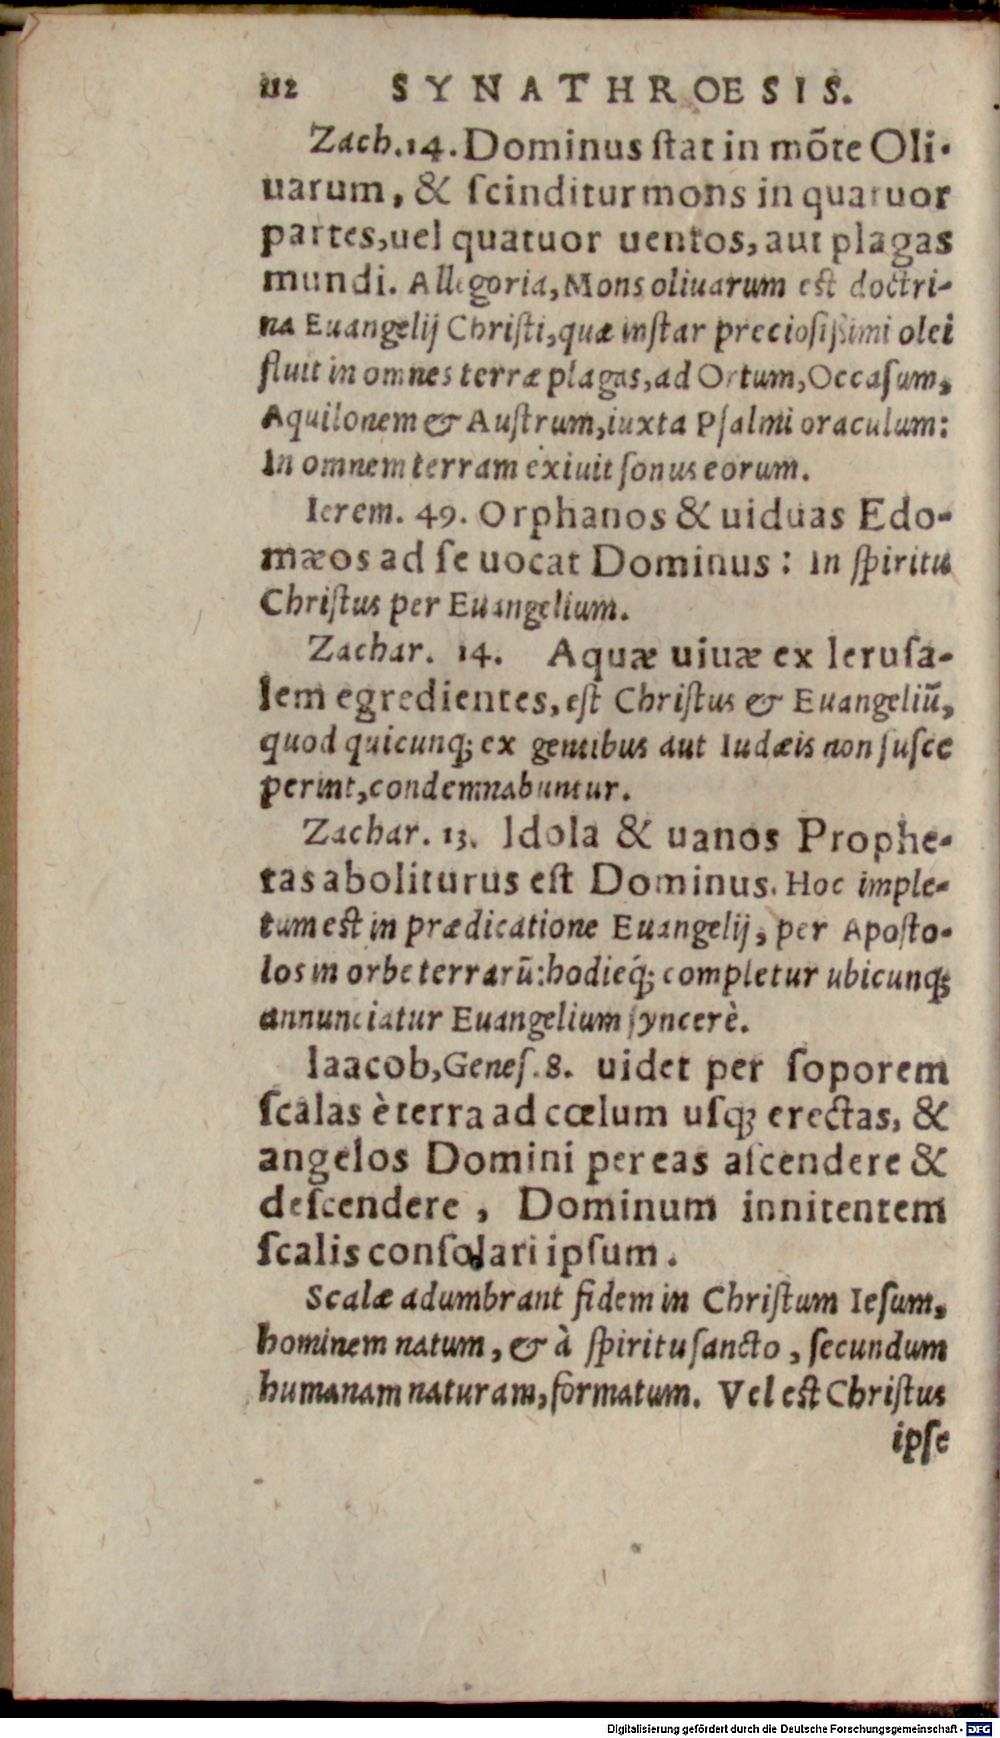 112 SYNATHROESIS.
Zach.14. Dominus ſtat in mõte Oli-
uarum, & ſcinditur mons in quatuor
partes, uel quatuor uentos, aut plagas
mundi. Allegoria, Mons oliuarum eſt doctri-
na Euangelij Chriſti, quæ inſtar precioſiſsimi olei
fluit in omnes terræ plagas, ad Ortum, Occaſum,
Aquilonem & Auſtrum, iuxta Pſalmi oraculum:
In omnem terram exiuit ſonus eorum.
Ierem. 49. Orphanos & uiduas Edo-
mæos ad ſe uocat Dominus: In ſpiritu
Chriſtus per Euangelium.
Zachar. 14. Aquæ uiuæ ex Ieruſa-
lem egredientes, eſt Chriſtus & Euangeliũ,
quod quicunq; ex gentibus aut Iudæis non ſuſce
perint, condemnabuntur.
Zachar. 13. Idola & uanos Prophe-
tas aboliturus eſt Dominus. Hoc imple-
tum eſt in prædicatione Euangelij, per Apoſto-
los in orbe terrarũ: hodieq́; completur ubicunq;
annunciatur Euangelium ſyncerè.
Iaacob, Geneſ. 8. uidet per ſoporem
ſcalas è terra ad cœlum uſq; erectas, &
angelos Domini per eas aſcendere &
deſcendere, Dominum innitentem
ſcalis conſolari ipſum.
Scalæ adumbrant fidem in Chriſtum Ieſum,
hominem natum, & à ſpiritu ſancto, ſecundum
humanam naturam, formatum. Vel eſt Chriſtus
ipſe
Digitalisierung gefördert durch die Deutsche Forschungsgemeinschaft - DFG